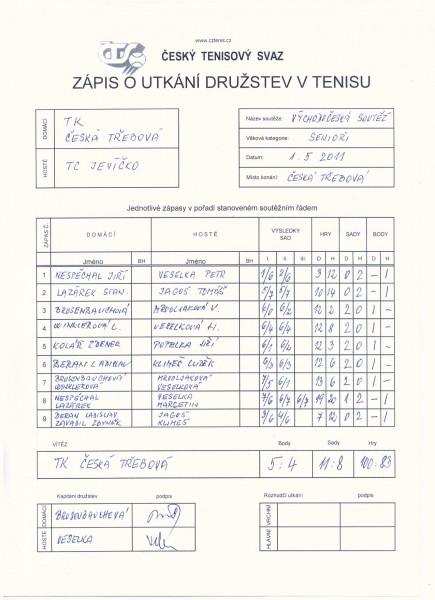 www.cztenis.cz
ČTS
ČESKÝ TENISOVÝ SVAZ
ZÁPIS O UTKÁNÍ DRUŽSTEV V TENISU
DOMÁCÍ TK ČESKÁ TŘEBOVÁ
HOSTÉ TC JEVÍČKO
Název soutěže: VÝCHODOČESKÁ SOUTĚŽ
Věková kategorie: SENIOŘI
Datum: 1.5 2011
Místo konání: ČESKÁ TŘEBOVÁ
Jednotlivé zápasy v pořadí stanoveném soutěžním řádem
ZÁPAS Č. DOMÁCÍ HOSTÉ VÝSLEDKY SAD HRY SADY BODY
Jméno BH Jméno BH I. II. III. D H D H D H
1 NESPĚCHAL JIŘÍ VESELKA PETR 1/6 2/6 3 12 0 2 – 1
2 LAZÁREK STAN. JAGOŠ TOMÁŠ 5/7 5/7 10 14 0 2 – 1
3 BROSENBAUCHOVÁ 6/0 6/2 12 2 2 0 1 –
4 WINKLEROVÁ L. VESELKOVÁ H. 6/4 6/4 12 8 2 0 1 –
5 KOLÁŘ ZDENEK JIŘÍ 6/1 6/2 12 3 2 0 1 –
6 BERAN LADISLAV KLIMEŠ LUDĚK 6/3 6/3 12 6 2 0 1 –
7 BROSENBAUCHOVÁ WINKLEROVÁ VESELKOVÁ 7/5 6/1 13 6 2 0 1 –
8 NESPĚCHAL LAZÁREK VESELKA 7/6 6/7 6/7 19 20 1 2 – 1
9 BERAN LADISLAV ZAVADIL ZBYNĚK JAGOŠ KLIMEŠ 3/6 4/6 7 12 0 2 – 1
VÍTĚZ Body Sady Hry
TK ČESKÁ TŘEBOVÁ 5:4 11:8 100:83
Kapitáni družstev podpis
Rozhodčí utkání podpis
DOMÁCÍ BROSENBAUCHOVÁ
HOSTÉ VESELKA
VRCHNÍ
HLAVNÍ